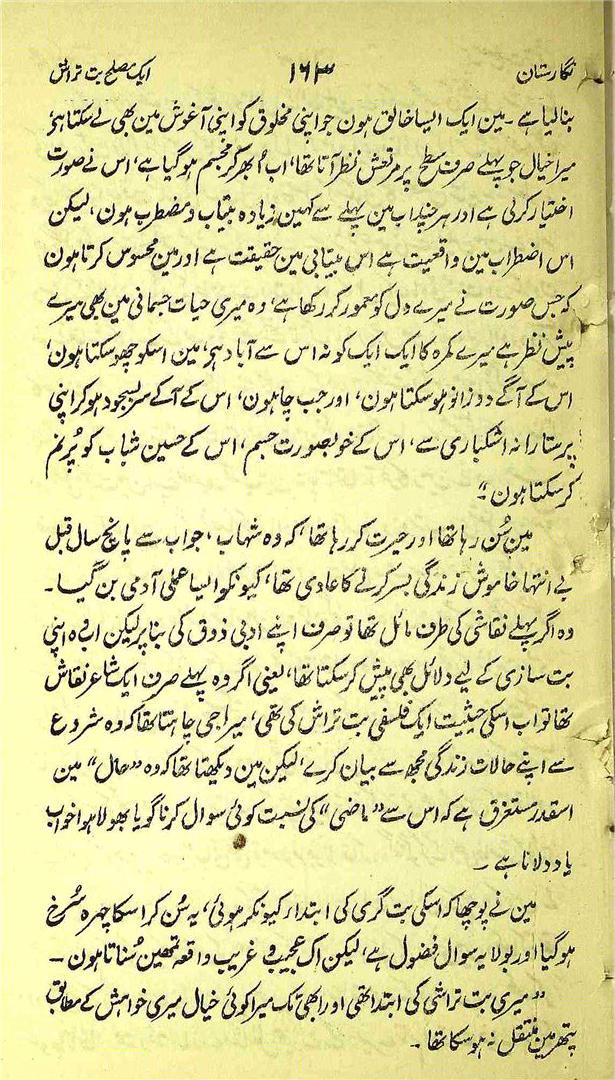 نگارستان ۱۶۳ ایک مصلح بت تراش
بنالیا ہے ۔ مین ایک ایسا خالق ہون جو اپنی مخلوق کو اپنی آغوش مین بھی لے سکتا ہے،
میرا خیال جو پہلے صرف سطح پر مرتعش نظر آتا تھا، اب اُبھر کر مجسم ہو گیا ہے، اس نے صورت
اختیار کرلی ہے اور ہر چند اب مین پہلے سے کہین زیادہ بیتاب و مضطرب ہون، لیکن
اس اضطراب مین واقعیت ہے اس بیتابی مین حقیقت ہے اور مین محسوس کرتا ہون
کہ جس صورت نے میرے دل کو معمور کر رکھا ہے، وہ میری حیات جسمانی مین بھی میرے
پیش نظر ہے میرے کمرہ کا ایک ایک کونہ اس سے آباد ہے، مین اسکو چھو سکتا ہون،
اس کے آگے دو زانو ہو سکتا ہون، اور جب چاہون، اس کے آگے سر بسجود ہو کر اپنی
پرستارانہ اشکباری سے، اس کے خوبصورت جسم، اس کے حسین شباب کو پُرنم
کر سکتا ہون ۔“
مین سُن رہا تھا اور حیرت کر رہا تھا، کہ وہ شہاب، جو اب سے پانچ سال قبل
بے انتہا خاموش زندگی بسر کرنے کا عادی تھا، کیونکر ایسا عملی آدمی بن گیا ۔
وہ اگر پہلے نقاشی کی طرف مائل تھا تو صرف اپنے ادبی ذوق کی بنا پر لیکن اب وہ اپنی
بت سازی کے لیے دلائل بھی پیش کر سکتا تھا، یعنی اگر وہ پہلے صرف ایک شاعر نقاش
تھا تو اب اسکی حیثیت ایک فلسفی بت تراش کی تھی، میرا جی چاہتا تھا کہ وہ شروع
سے اپنے حالات زندگی مجھ سے بیان کرے، لیکن مین دیکھتا تھا کہ وہ ”حال“ مین
اسقدر مستغرق ہے کہ اس سے ”ماضی“ کی نسبت کوئی سوال کرنا گویا بھولا ہوا خواب
یاد دلانا ہے ۔
مین نے پوچھا کہ اسکی بت گری کی ابتدا کیونکر ہوئی، یہ سُن کر اسکا چہرہ سُرخ
ہو گیا اور بولا یہ سوال فضول ہے، لیکن اک عجیب و غریب واقعہ تمھین سُناتا ہون ۔
”میری بت تراشی کی ابتدا تھی اور ابھی تک میرا کوئی خیال میری خواہش کے مطابق
پتھر مین منتقل نہ ہو سکا تھا ۔